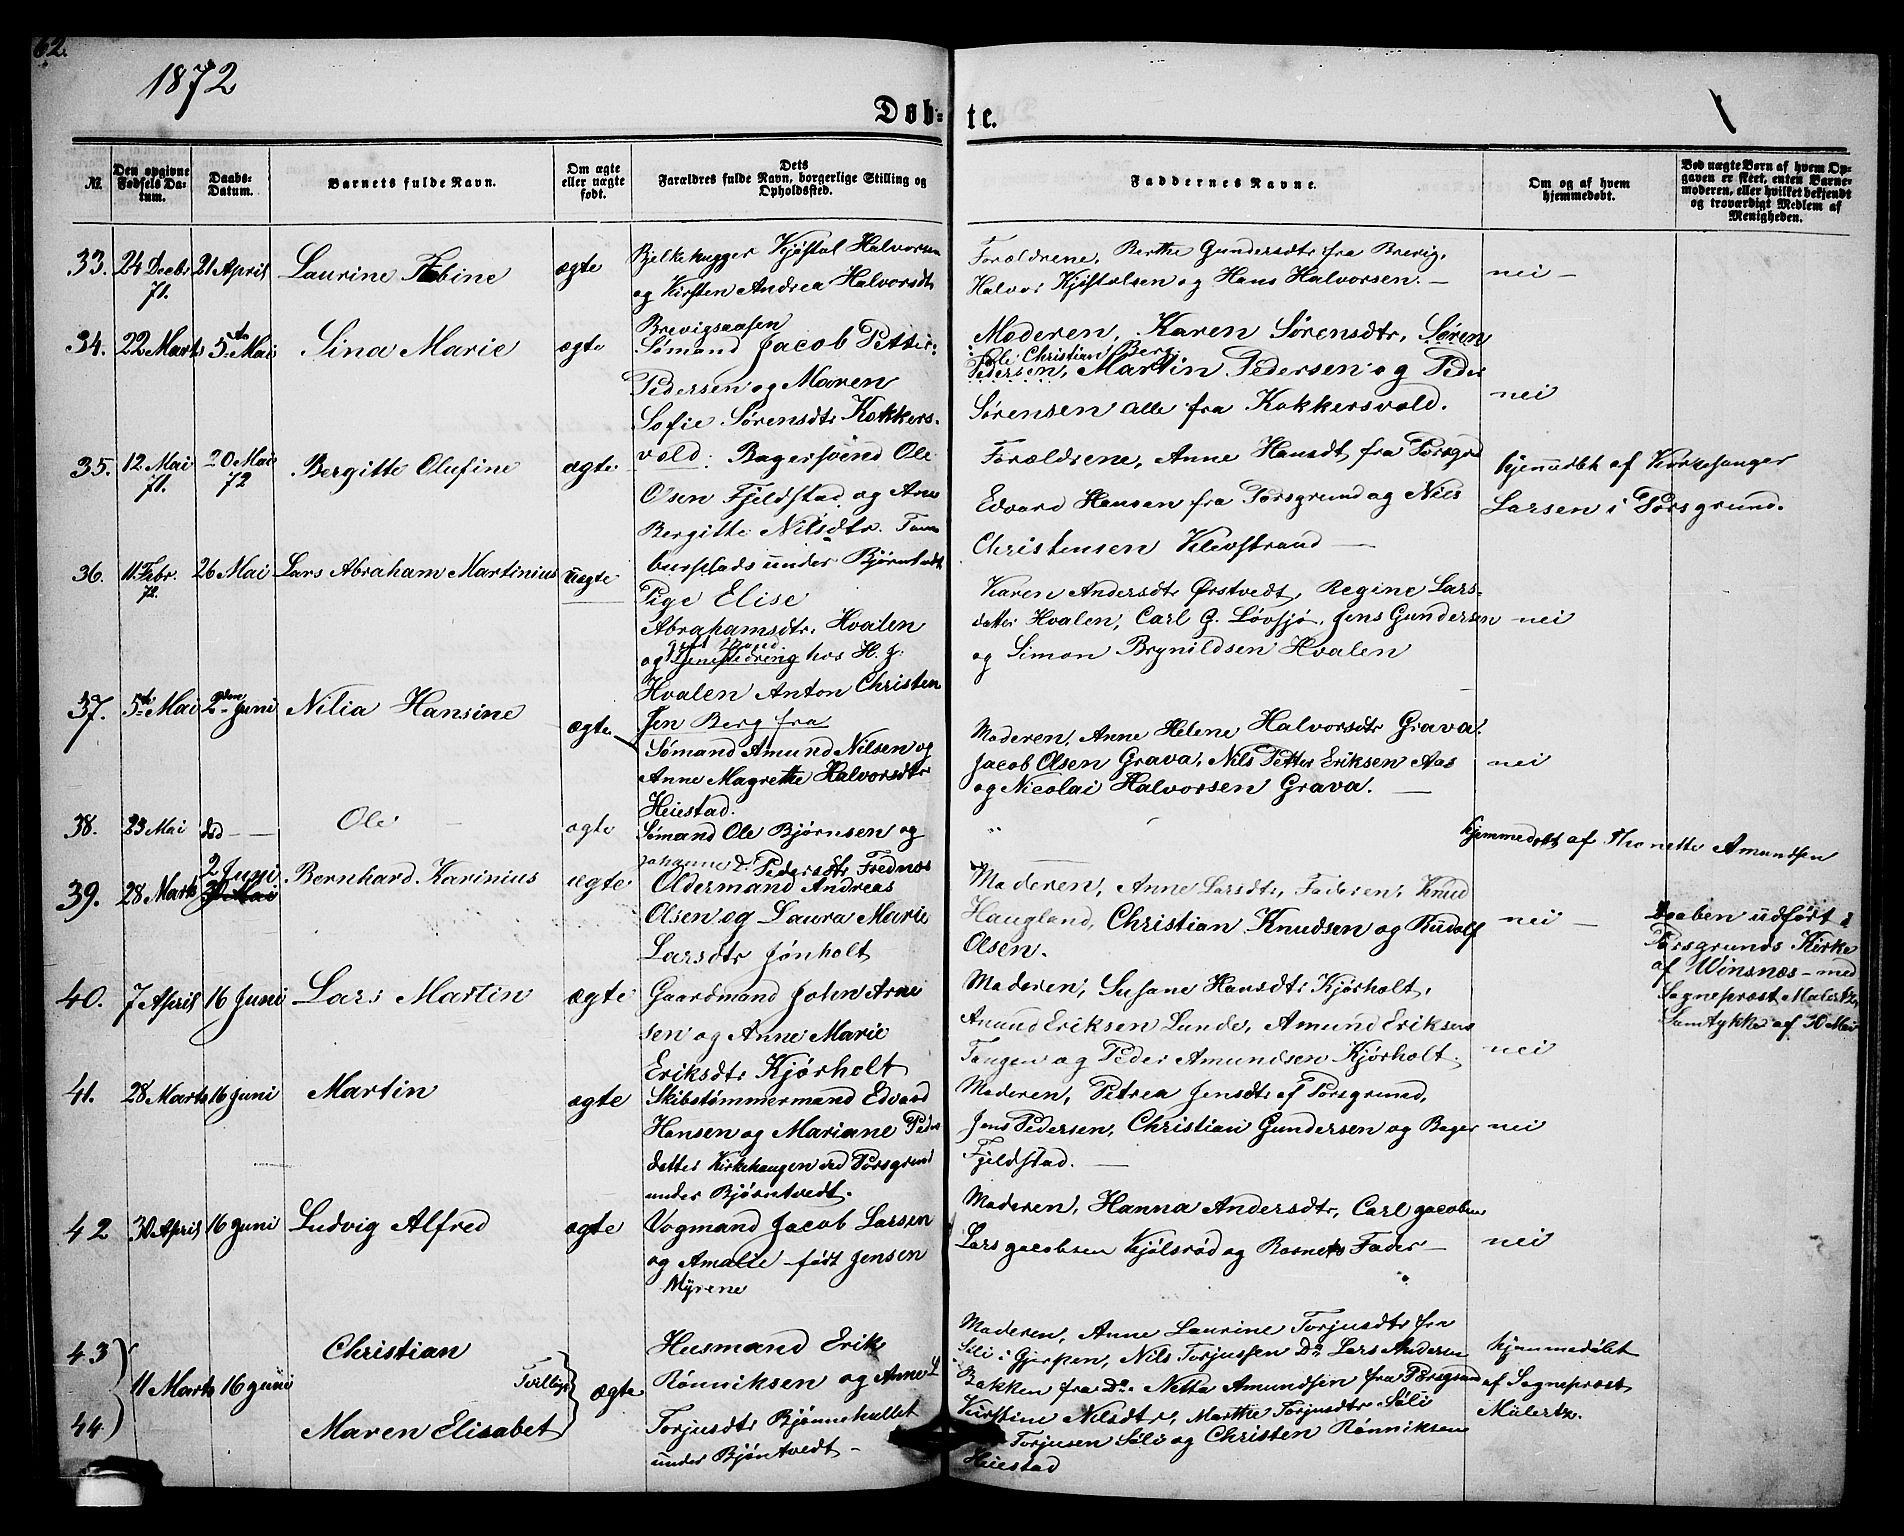 62.
1872
Døb=
te.
№.
Den opgivne Fødsels Datum.
Daabs-Datum.
Barnets fulde Navn.
Om ægte eller uægte født.
Dets Forældres fulde Navn, borgerlige Stilling og Opholdsted.
Faddernes Navne.
Om og af hvem hjemmedøbt.
Ved uægte Børn af hvem Opgaven er skeet, enten Barnemoderen, eller hvilket bekjendt og troværdigt Medlem af Menigheden.
33. 24 Decbr 71. 21 April Laurine Tobine ægte
Bjelkehugger Kjøstol Halvorsen
og Kirsten Andrea Halvorsdtr
Brevigsaasen
Forældrene, Berthe Gundersdtr fra Brevig,
Halvor Kjøstolsen og Hans Halvorsen. —
nei —
34. 22 Marts 5te Mai Sina Marie ægte
Sømand Jacob Petter
Pedersen og Maren
Sofie Sørensdtr Kokkers-
vold.
Moderen, Karen Sørensdtr, Søren
Ole Christian Berg
Pedersen, Martin Pedersen og Peder
Sørensen alle fra Kokkersvold.
nei
35. 12 Mai 71. 20 Mai 72 Bergitte Olufine ægte
Bagersvend Ole
Olsen Fjeldstad og Ane
Bergitte Nilsdtr.
burplads under Bjørntvedt
Forældrene, Anne Hansdt fra Porsgrd
Edvard Hansen fra Porsgrund og Nils
Christensen Klevstrand —
hjemdøbt af Kirkesanger
Larsen i Porsgrund.
36. 11 Febr. 72. 26 Mai Lars Abraham Martinius uægte
Pige Elise
Abrahamsdtr. Hvalen
og hos H. J.
Hvalen Anton Christen
Jen Berg fra
Karen Andersdtr Ørstvedt, Regine Lars-
datter Hvalen, Carl G. Løvsjø, Jens Gundersen
og Simon Brynildsen Hvalen
nei
37. 5te Mai 2den Juni Nilia Hansine ægte
Sømand Amund Nilsen og
Anne Magrethe Halvorsdtr
Heiestad.
Moderen, Anne Helene Halvorsdtr Grava.
Jacob Olsen Grava, Nils Petter Eriksen Aas
og Nicolai Halvorsen Grava. —
nei
38. 23 Mai død — Ole — ægte
Sømand Ole Bjørnsen og
Johanne D. Pedersdtr Frednes
hjemmedøbt af Thonette Amundsen
39. 28 Marts 2 Juni 30 Mai Bernhard Karinius ægte
Oldermand Andreas
Olsen og Laura Marie
Larsdtr Jønholt
Moderen, Anne Larsdtr, Faderen, Knud
Haugland, Christian Knudsen og Rudolf
Olsen.
nei —
Daaben udført i
Porsgrunds Kirke
af Winsnes — med
Sogneprest Malertz,
Samtykke af 30 Mai
40. 7 April 16 Juni Lars Martin ægte
Gaardmand John Arne
sen og Anne Marie
Eriksdtr Kjørholt
Moderen, Susane Hansdtr Kjørholt,
Amund Eriksen Lunde, Amund Eriksen
Tangen og Peder Amundsen Kjørholt.
nei
41. 28 Marts 16 Juni Martin ægte
Skibstømmermand Edvard
Hansen og Mariane Peders
datter Kirkehaugen ved Porsgrund
under Bjørntvedt.
Moderen, Petrea Jensdtr af Porsgrund,
Jens Pedersen, Christian Gundersen og Bager
Fjeldstad. —
nei
42 30 April 16 Juni Ludvig Alfred ægte
Vogmand Jacob Larsen
og Amalie født Jensen
Myrene
Moderen, Hanna Andersdtr, Carl Jacobsen
Lars Jacobsen Kjølsrød og Barnets Fader —
nei
43
44
11 Marts 16 Juni
Christian
Maren Elisabet
Tvillinge
ægte
Husmand Erik
Rønniksen og Anne L
Torjusdtr Bjønnehullet
under Bjøntvedt —
Moderen, Anne Laurine Torjusdtr fra
Soli i Gjerpen, Nils Torjussen Do Lars Andersen
Bakken fra Do. Netta Amundsen fra Porsgrund
Kirstine Nilsdtr, Marthe Torjusdtr Soli
Torjusen Soli og Christen Rønniksen
Heiestad
hjemmedøbt
af Sogneprest
Mülertz.